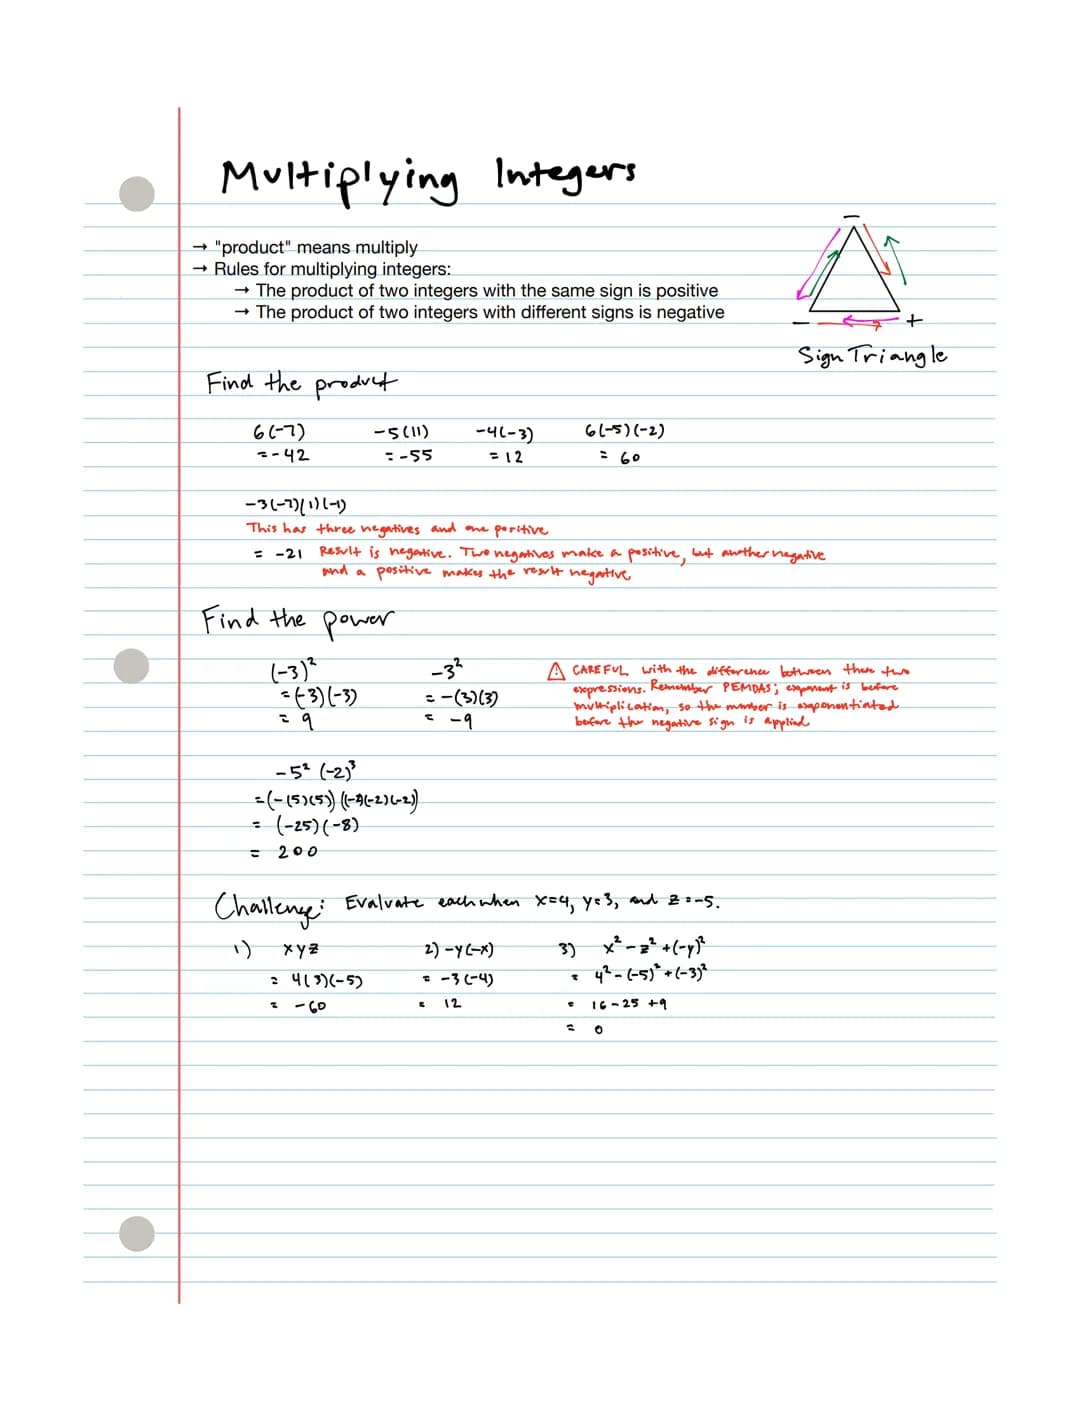 Multiplying Integers
→ "product" means multiply
→ Rules for multiplying integers:
→ The product of two integers with the same sign is positive
→ The product of two integers with different signs is negative
−
− +
Sign Triangle
Find the product
6(-7) -5(11) -4(-3) 6(-5)(-2)
= -42 = -55 = 12 = 60
-3(-7)(1)(-1)
This has three negatives and one positive
= -21 Result is negative. Two negatives make a positive, but another negative
and a positive makes the result negative
Find the power
(-3)² -3² ⚠ CAREFUL with the difference between these two
= (-3)(-3) = -(3)(3) expressions. Remember PEMDAS; exponent is before
= 9 = -9 multiplication, so the number is exponentiated
before the negative sign is applied
-5² (-2)³
= (-(5)(5)) ((-2)(-2)(-2))
= (-25)(-8)
= 200
Challenge: Evaluate each when x=4, y=3, and z=-5.
1) xyz 2) -y(-x) 3) x² - z² + (-y)²
= 4(3)(-5) = -3(-4) = 4² - (-5)² + (-3)²
= -60 = 12 = 16 - 25 + 9
= 0